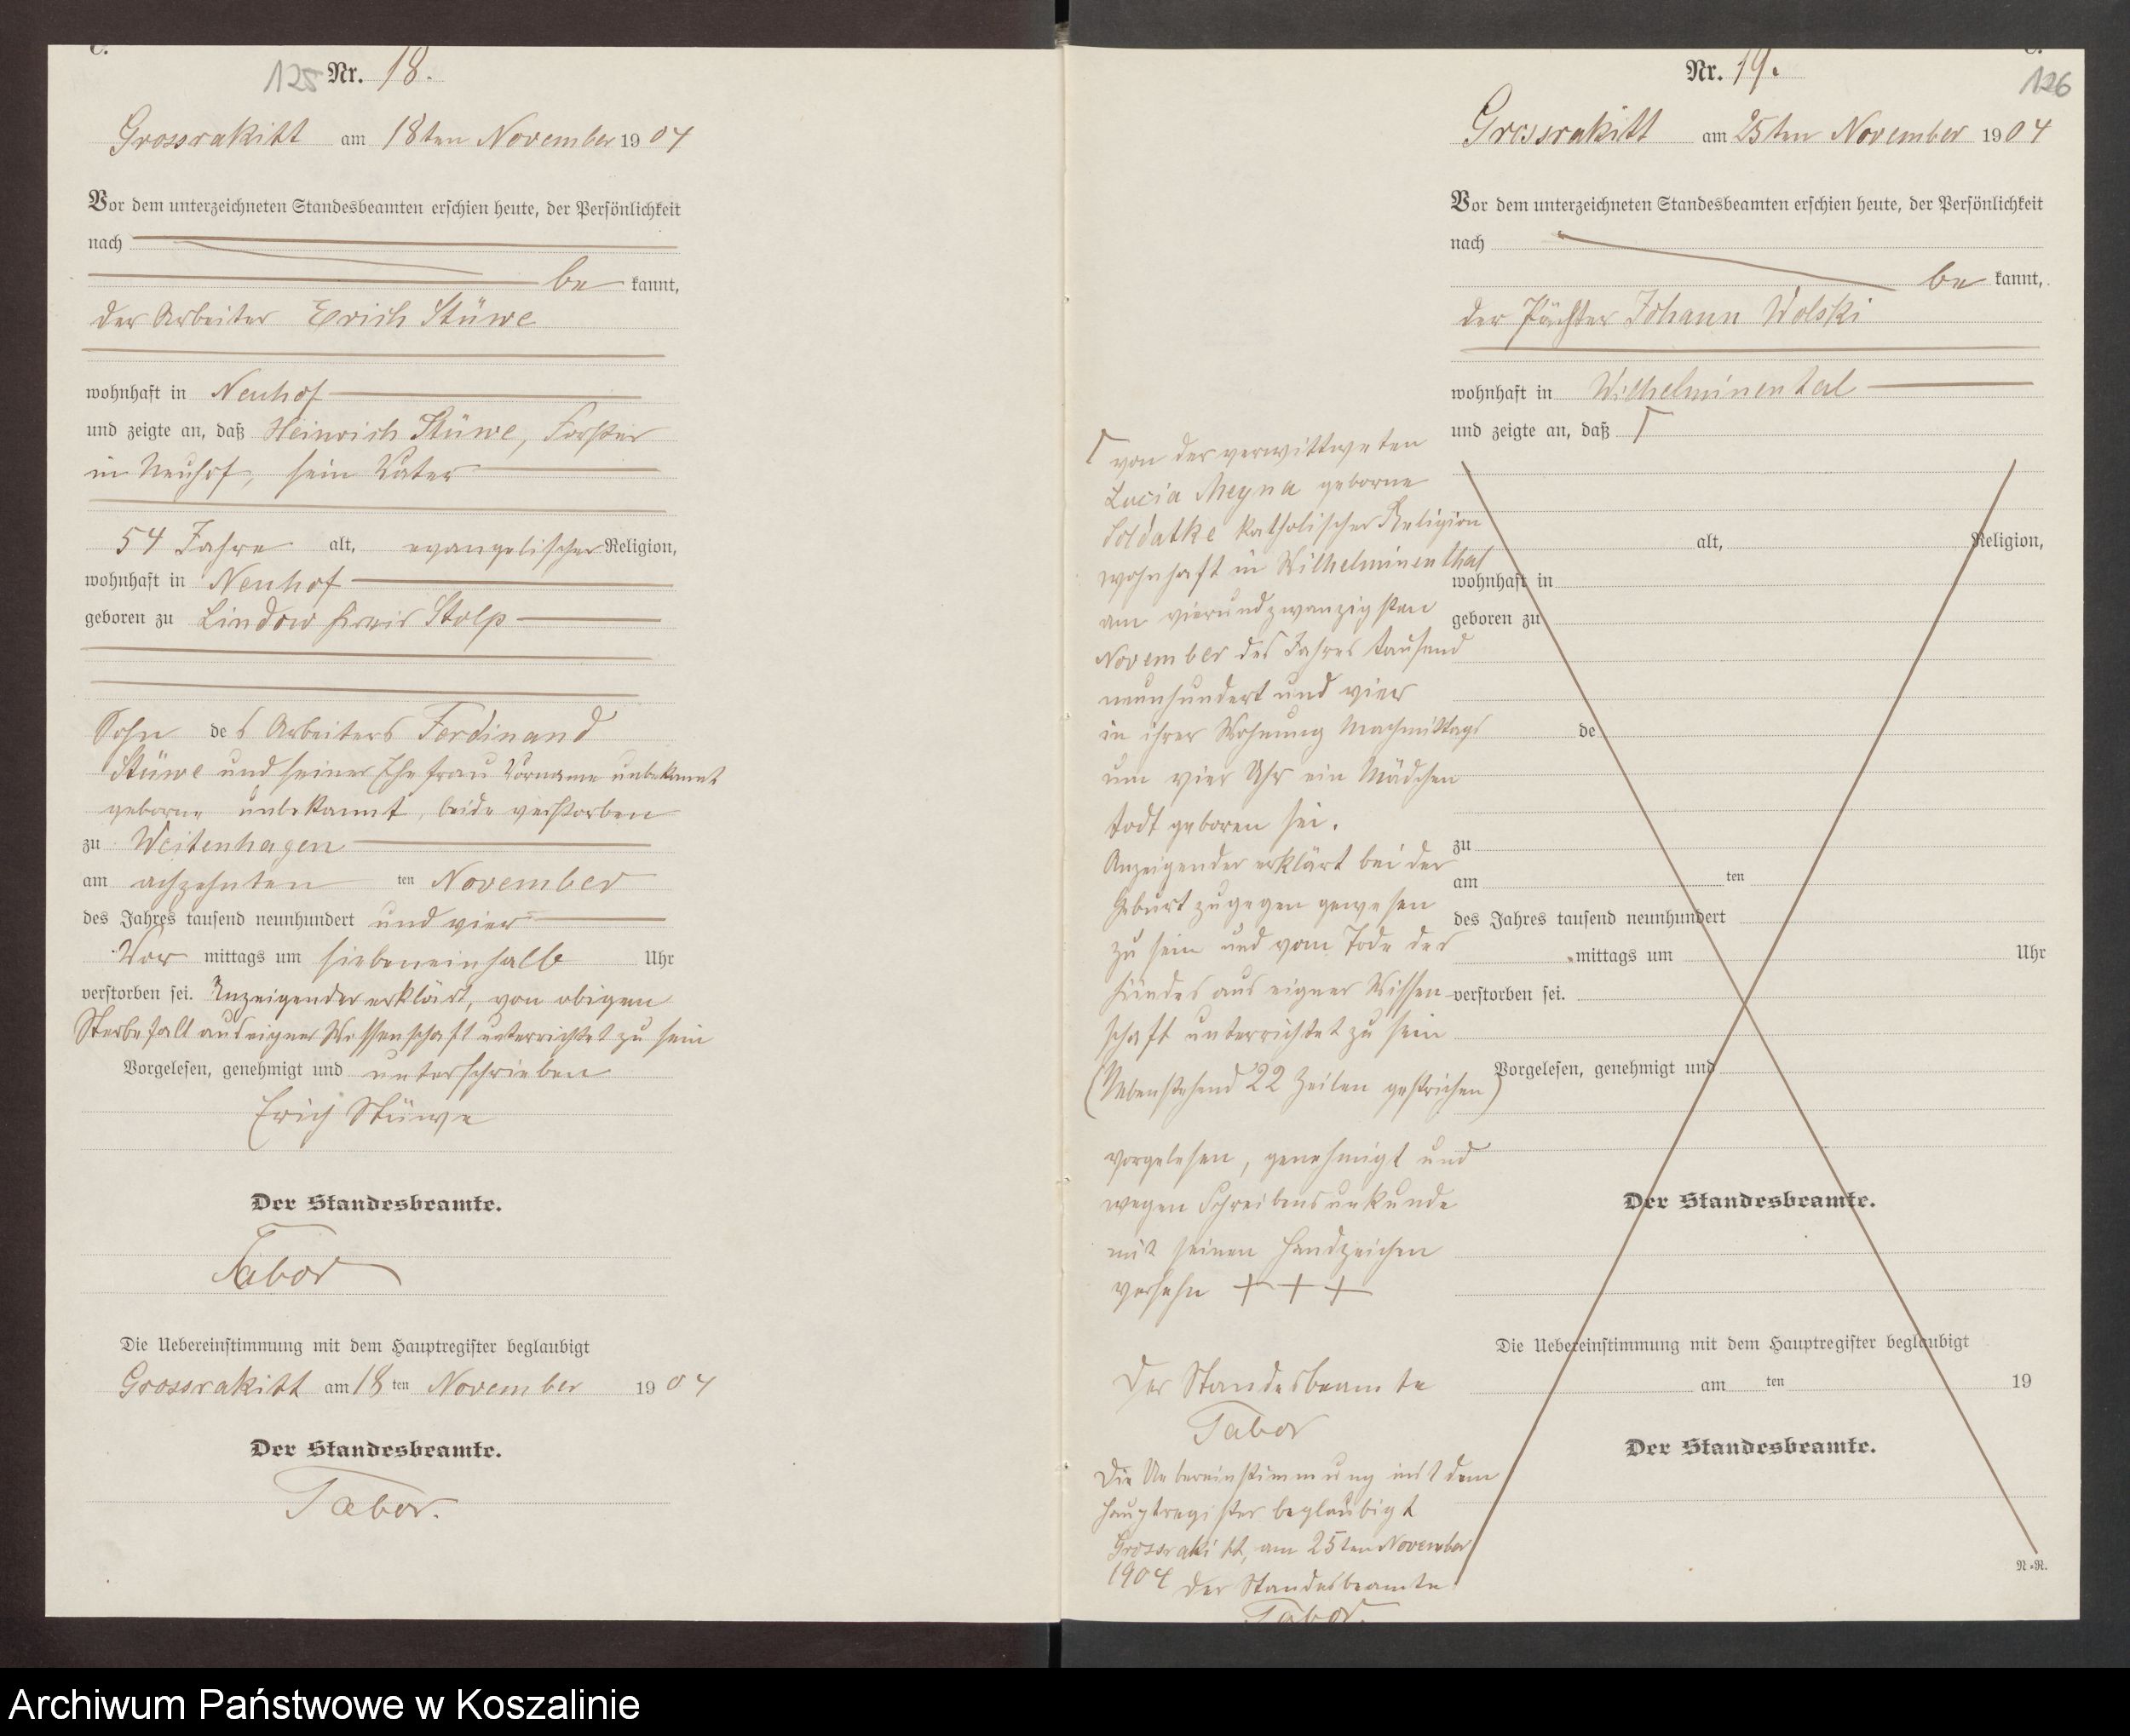 C.
125 Nr. 18.
Grossrakitt am 18ten November 1904
Vor dem unterzeichneten Standesbeamten erschien heute, der Persönlichkeit
nach
be kannt,
der Arbeiter Erich Stüwe
wohnhaft in Neuhof
und zeigte an, daß Heinrich Stüwe, Förster
in Neuhof, sein Vater
54 Jahre alt, evangelischer Religion,
wohnhaft in Neuhof
geboren zu Lindow Kreis Stolp
Sohn des Arbeiters Ferdinand
Stüwe und seiner Ehefrau Vorname unbekannt
geborne unbekannt, beide verstorben
zu Weitenhagen
am achzehnten ten November
des Jahres tausend neunhundert und vier
Vor mittags um siebeneinhalb Uhr
verstorben sei. Anzeigender erklärt, von obigen
Sterbefall aus eigner Wissenschaft unterrichtet zu sein
Vorgelesen, genehmigt und unterschrieben
Erich Stüwe
Der Standesbeamte.
Tabor
Die Uebereinstimmung mit dem Hauptregister beglaubigt
Grossrakitt am 18 ten November 1904
Der Standesbeamte.
Tabor.
C.
Nr. 19. 126
Grossrakitt am 25ten November 1904
Vor dem unterzeichneten Standesbeamten erschien heute, der Persönlichkeit
nach
be kannt,
der Pächter Johann Wolski
wohnhaft in Wilhelminenthal
und zeigte an, daß Γ
Γ von der verwittweten
Lucia Meyna geborne
Soldatke katholischer Religion
wohnhaft in Wilhelminenthal
am vierundzwanzigsten
November des Jahres tausend
neunhundert und vier
in ihrer Wohnung Nachmittags
um vier Uhr ein Mädchen
todt geboren sei.
Anzeigender erklärt bei der
Geburt zugegen gewesen
zu sein und vom Tode des
Kindes aus eigner Wissen
schaft unterrichtet zu sein
(Nebenstehend 22 Zeilen gestrichen)
vorgelesen, genehmigt und
wegen Schreibensunkunde
mit seinen Handzeichen
versehn + + +
Der Standesbeamte
Tabor
Die Uebereinstimmung mit dem
Hauptregister beglaubigt
Grossrakitt, am 25ten November
1904 Der Standesbeamte
Tabor.
alt, Religion,
wohnhaft in
geboren zu
de
zu
am ten
des Jahres tausend neunhundert
mittags um Uhr
verstorben sei.
Vorgelesen, genehmigt und
Der Standesbeamte.
Die Uebereinstimmung mit dem Hauptregister beglaubigt
am ten 19
Der Standesbeamte.
N.R.
Archiwum Państwowe w Koszalinie